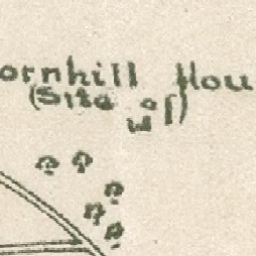 ornhill Hou
(Site of)